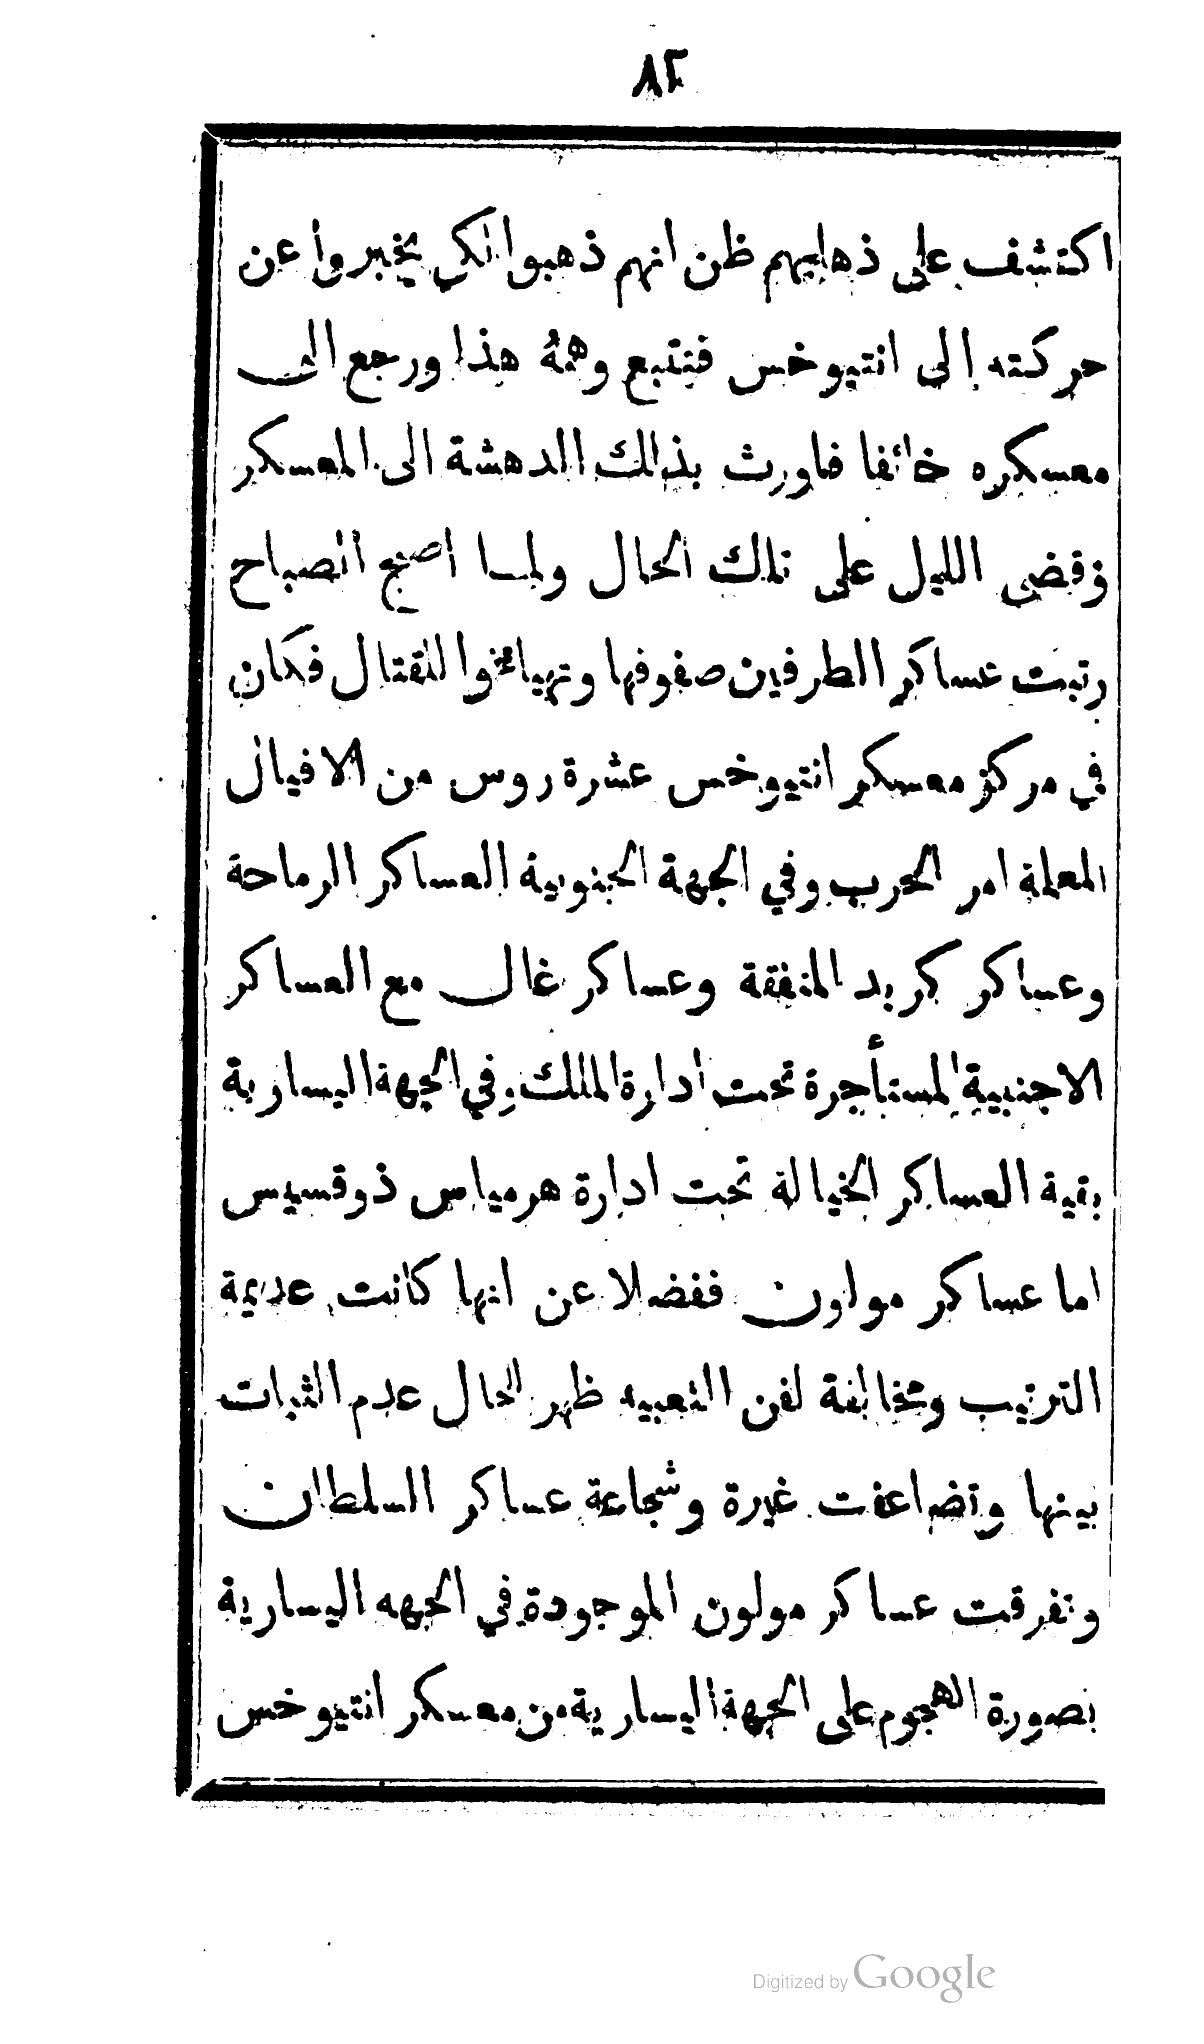 ٨٢
اكتشف على ذهابهم ظن انهم ذهبوا لكي يخبروا عن
حركته إلى انتيوخس فتتبع وهمهُ هذا ورجع الى
معسكره خائفا فاورث بذلك الدهشة الى المعسكر
وقضى الليل على تلك الحال ولما اصبح الصباح
رتبت عساكر الطرفين صفوفها وتهيائوا للقتال فكان
في مركز معسكر انتيوخس عشرة روس من الافيال
المعلمة امر الحرب وفي الجهة الجنوبية العساكر الرماحة
وعساكر كريد المتفقة وعساكر غال مع العساكر
الاجنبية المستأجرة تحت ادارة الملك وفي الجهة اليسارية
بقية العساكر الخيالة تحت ادارة هرمياس ذوقسيس
اما عساكر مولون ففضلا عن انها كانت عديمة
الترتيب ومخالفة لفن التعبيه ظهر الحال عدم الثبات
بينها وتضاعفت غيرة وشجاعة عساكر السلطان
وتفرقت عساكر مولون الموجودة في الجهه اليسارية
بصورة الهجوم على الجهة اليسارية من معسكر انتيوخس
Digitized by Google